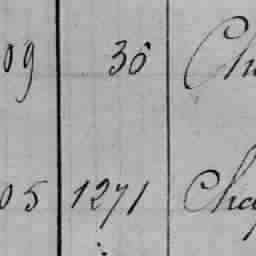 09 36 Ch
05 1271 Cha